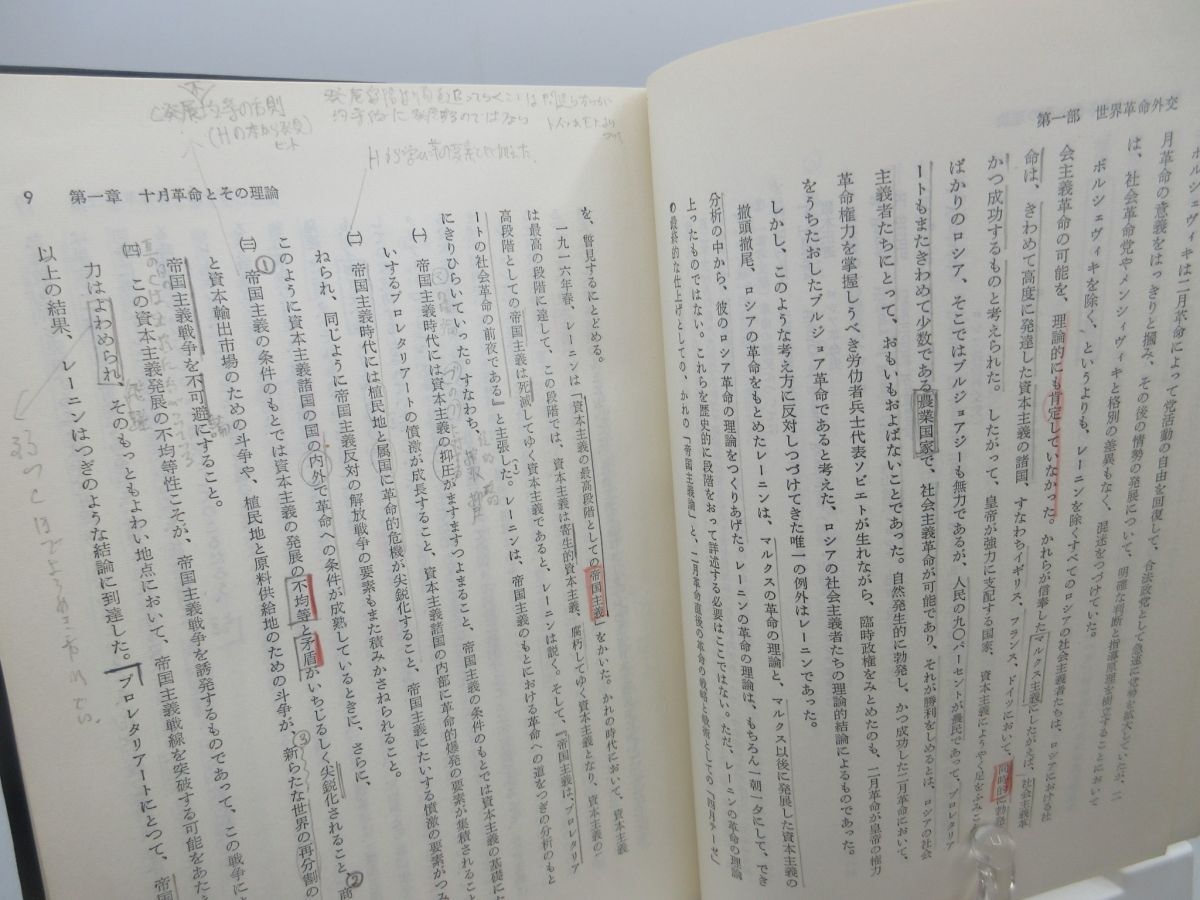 第一部　世界革命外交
ボルシェヴィキは、二月革命によって党活動の自由を回復して、合法政党として急速に勢力を拡大していたが、二
月革命の意義をはっきり摑み、その後の情勢の発展について、明確な判断と指導原理を樹立することにおいて
は、社会革命党やメンシェヴィキと格別の差異もなく、混迷をつづけていた。
ボルシェヴィキを除く、というよりも、レーニンを除くすべてのロシアの社会主義者たちは、ロシアにおける社
会主義革命の可能を、理論的にも肯定していなかった。かれらが信奉したマルクス主義にしたがえば、社会主義革
命は、きわめて高度に発達した資本主義の諸国、すなわちイギリス、フランス、ドイツにおいて、同時的に勃発
かつ成功するものと考えられた。したがって、皇帝が強力に支配する国家、資本主義にようやく足をふみこ
ばかりのロシア、そこではブルジョアジーも無力であるが、人民の九〇パーセントが農民であって、プロレタリア
ートもまたきわめて少数である農業国家で、社会主義革命が可能であり、それが勝利をしめるとは、ロシアの社会
主義者たちにとって、おもいもおよばないことであった。自然発生的に勃発し、かつ成功した二月革命において、
革命権力を掌握しうべき労働者兵士代表ソビエトが生れながら、臨時政権をみとめたのも、二月革命が皇帝の権力
をうちたおしたブルジョア革命であると考えた、ロシアの社会主義者たちの理論的結論によるものであった。
しかし、このような考え方に反対しつづけてきた唯一の例外はレーニンであった。
撤頭撤尾、ロシアの革命をもとめたレーニンは、マルクスの革命の理論と、マルクス以後に発展した資本主義の
分析の中から、彼のロシア革命の理論をつくりあげた。レーニンの革命の理論は、もちろん一朝一夕にして、でき
上ったものではない。これらを歴史的に段階をおって詳述する必要はここではない。ただ、レーニンの革命の理論
の最終的な仕上げとしての、かれの「帝国主義論」と、二月革命直後の革命の戦略と戦術としての「四月テーゼ」
9　第一章　十月革命とその理論
を、瞥見するにとどめる。
一九一六年春、レーニンは『資本主義の最高段階としての帝国主義』をかいた。かれの時代において、資本主義
は最高の段階に達して、この段階では、資本主義は寄生的資本主義、腐朽してゆく資本主義となり、資本主義の
高段階としての帝国主義は死滅してゆく資本主義であると、レーニンは説く。そして、『帝国主義は、プロレタリア
ートの社会革命の前夜である』と主張した。(1)レーニンは、帝国主義のもとにおける革命への道をつぎの分析のもと
にきりひらいていった。すなわち、
㈠　帝国主義時代には資本主義の抑圧がますますつよまること、帝国主義の条件のもとでは資本主義の基礎にた
いするプロレタリアートの憤激が成長すること、資本主義諸国の内部に革命的爆発の要素が集積されること
㈡　帝国主義時代には植民地と属国に革命的危機が尖鋭化すること、帝国主義にたいする憤激の要素がつみ
ねられ、同じように帝国主義反対の解放戦争の要素もまた積みかさねられること。
このように資本主義諸国の国の内外で革命への条件が成熟しているときに、さらに、
㈢　帝国主義の条件のもとでは資本主義の発展の不均等と矛盾がいちじるしく尖鋭化されること、商
と資本輸出市場のための斗争や、植民地と原料供給地のための斗争が、新らたな世界の再分割の
帝国主義戦争を不可避にすること。
㈣　この資本主義発展の不均等性こそが、帝国主義戦争を誘発するものであって、この戦争に
力はよわめられ、そのもっともよわい地点において、帝国主義戦線を突破する可能をあた
以上の結果、レーニンはつぎのような結論に到達した。プロレタリアートにとって、帝国
①
②
③